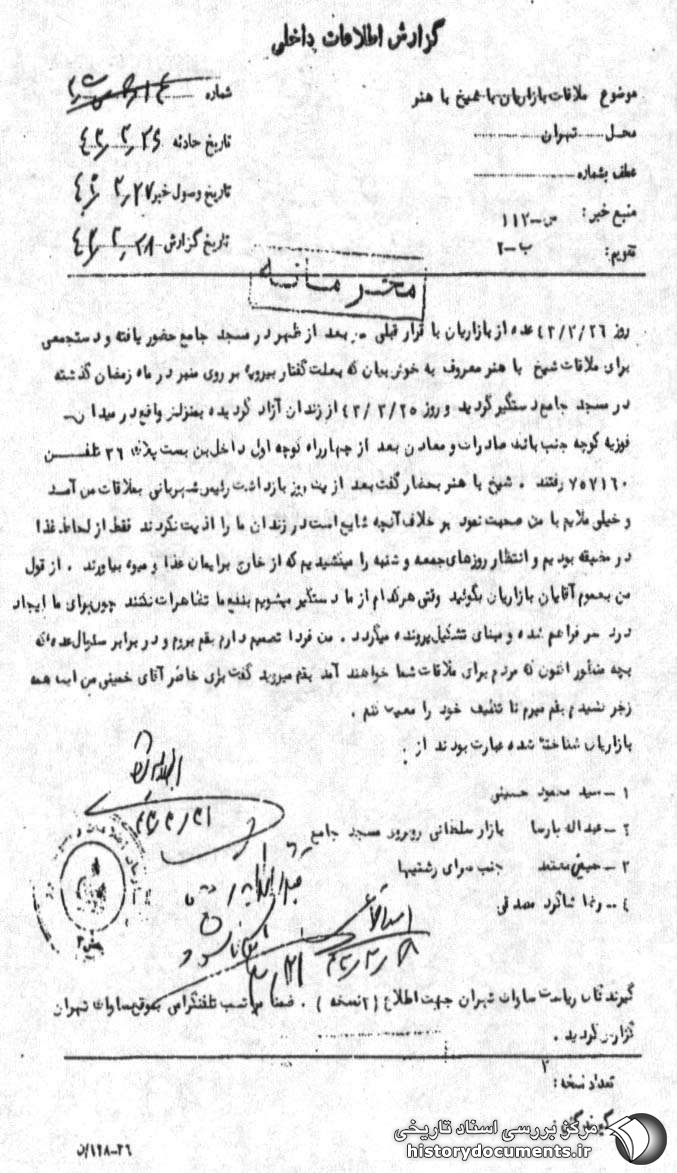 گزارش اطلاعات داخلی
موضوع ملاقات بازاریان با شیخ با هنر
شماره
محل تهران
تاریخ حادثه ۴۳/۲/۲۶
عطف بشماره
تاریخ وصول خبر ۴۳/۲/۲۷
منبع خبر: س-۱۱۲
تاریخ گزارش ۴۳/۲/۲۸
تقویم: ب-۲
محرمانه
روز ۴۳/۲/۲۶ عده از بازاریان با قرار قبلی بعد از ظهر در مسجد جامع حضور یافته و دستجمعی
برای ملاقات شیخ با هنر معروف به خوش بیان که بعلت گفتار بیرویه بر روی منبر در ماه رمضان گذشته
در مسجد جامع دستگیر گردید و روز ۴۳/۲/۲۵ از زندان آزاد گردیده بمنزلش واقع در میدان
فوزیه کوچه جنب بانک صادرات و معادن بعد از چهارراه کوچه اول داخل بن بست پلاک ۳۶ تلفن
۷۵۷۱۶۰ رفتند . شیخ با هنر بحضار گفت بعد از یک روز بازداشت رئیس شهربانی بملاقات من آمد
و خیلی ملایم با من صحبت نمود بر خلاف آنچه شایع است در زندان ما را اذیت نکردند فقط از لحاظ غذا
در مضیقه بودیم و انتظار روزهای جمعه و شنبه را میکشیدیم که از خارج برایمان غذا و میوه بیاورند . از قول
من بعموم آقایان بازاریان بگوئید وقتی هرکدام از ما دستگیر میشویم بنفع ما تظاهرات نکنند چون برای ما ایجاد
درد سر فراهم شده و مبنای تشکیل پرونده میگردد . من فردا تصمیم دارم بقم بروم و در برابر سئوال عده‌ای که
بچه منظور اکنون که مردم برای ملاقات شما خواهند آمد بقم میروید گفت برای خاطر آقای خمینی من اینهمه
زجر کشیدم بقم میرم تا تکلیف خود را معین کنم .
بازاریان شناخته شده عبارت بودند از :
۱ – سید محمود حسینی
۲ – عبداله پارسا بازار سلطانی روبروی مسجد جامع
۳ – حسین معتمد جنب سرای رشتیها
۴ – رضا شاگرد مصدقی
گیرندگان ریاست ساواک تهران جهت اطلاع (۲ نسخه) . ضمناً مراتب تلفنگرامی بموقع بساواک تهران
گزارش گردید .
تعداد نسخه : ۲
گیرندگان
۱۲۸-۲۶/ن
مرکز بررسی اسناد تاریخی
historydocuments.ir